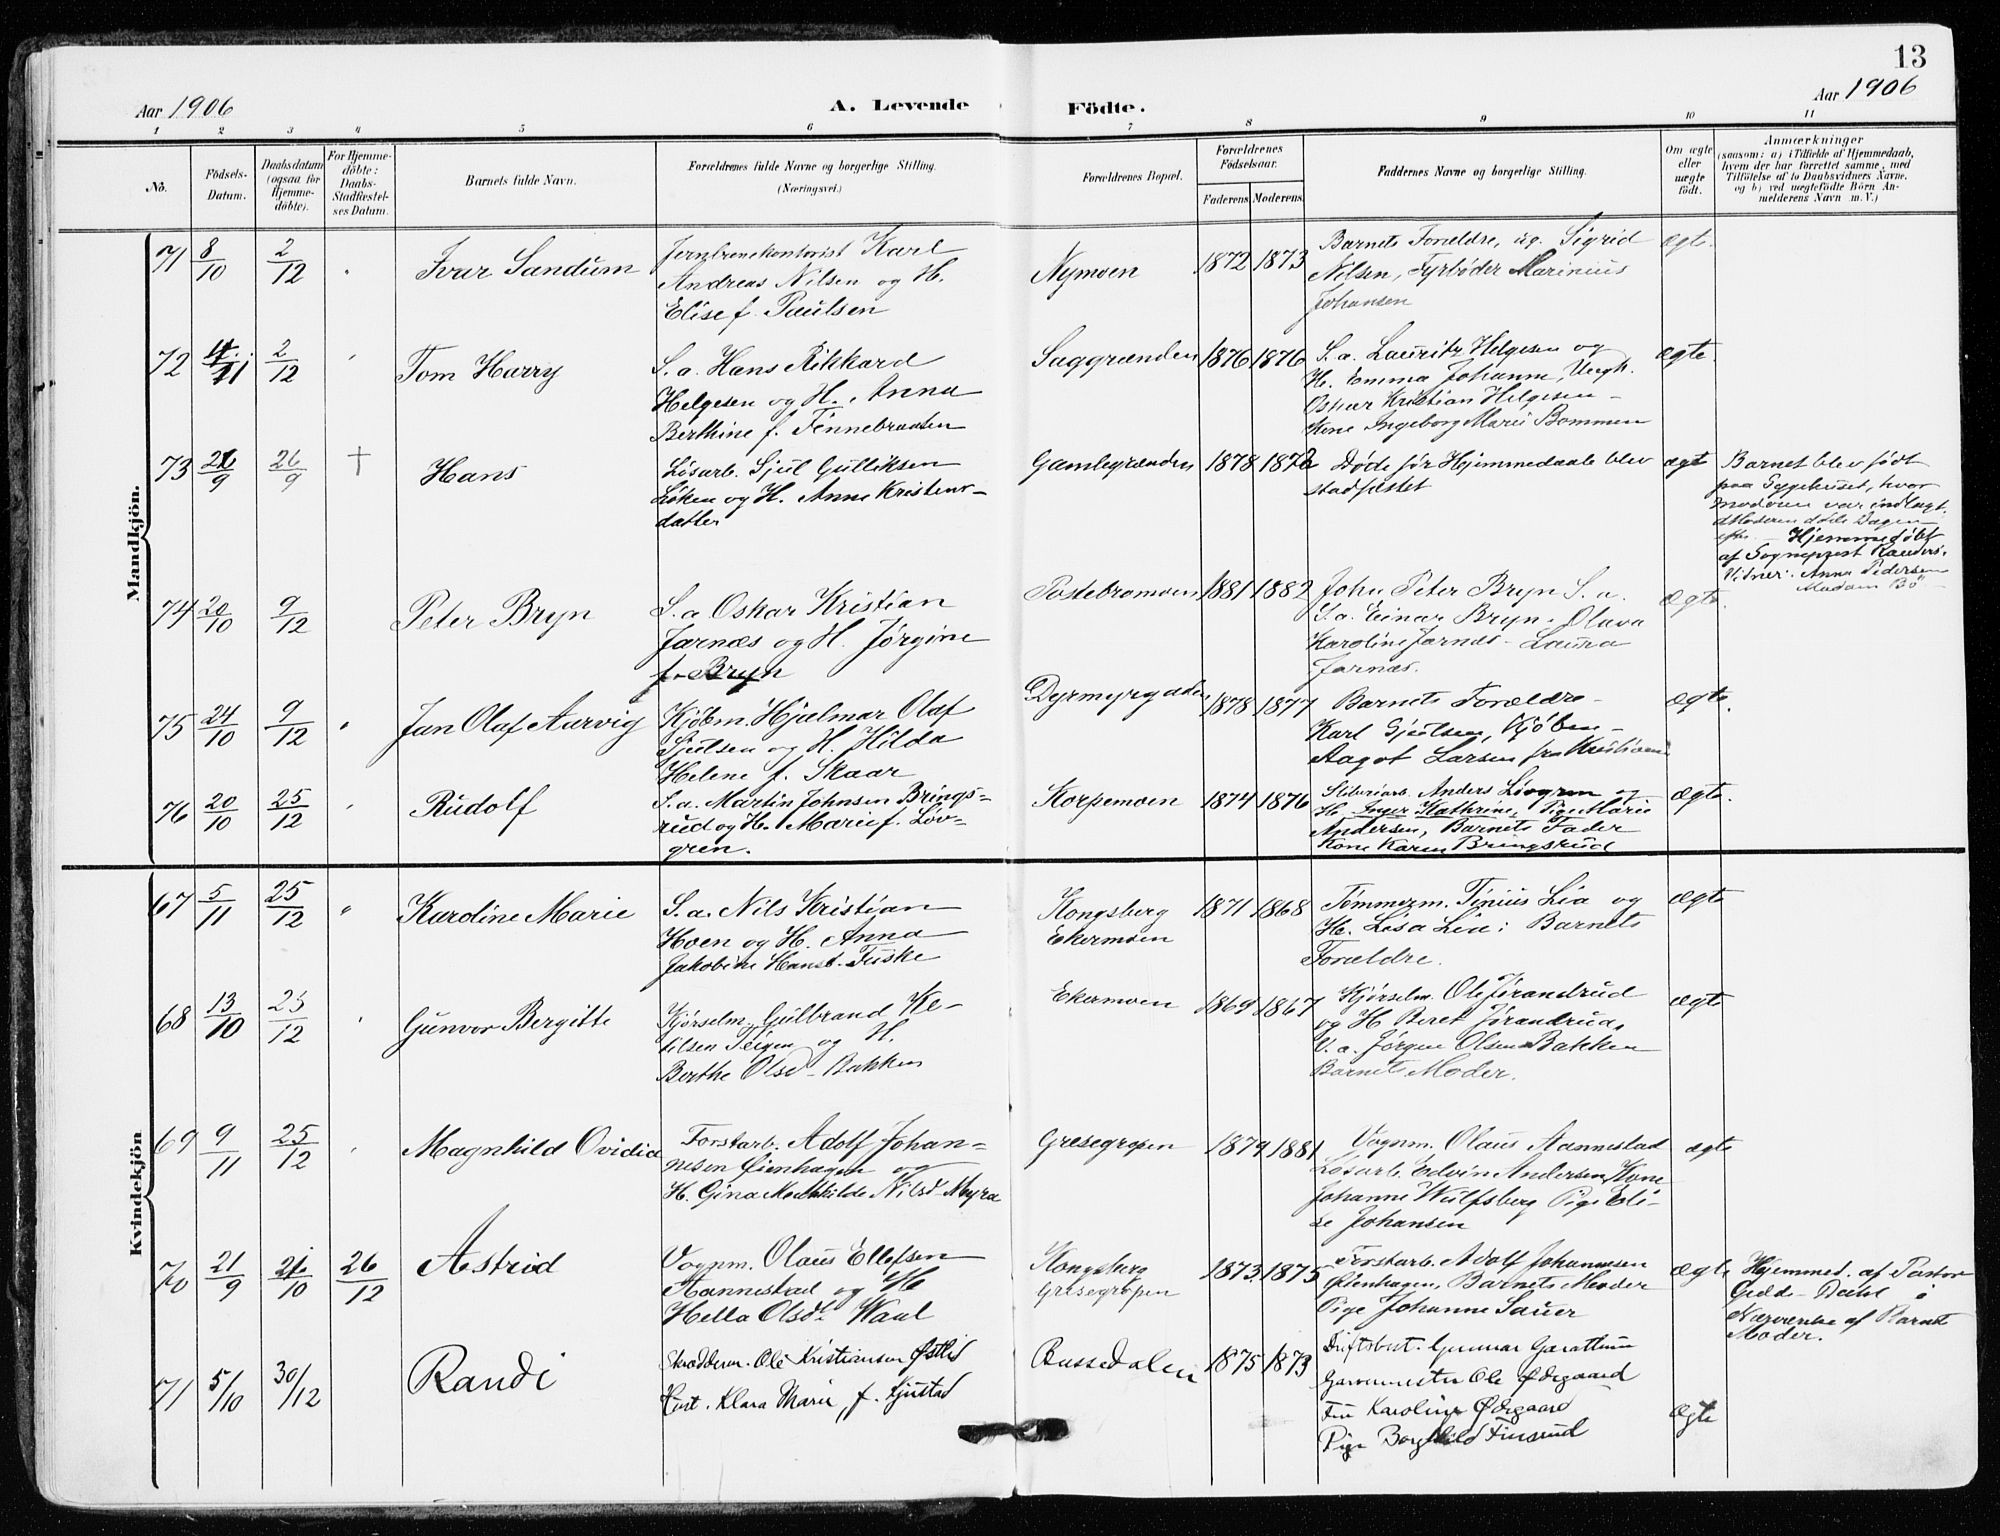 13
Aar 1906
A. Levende
Födte.
Aar 1906
1 2 3 4 5 6 7 8 9 10 11
No.
Födsels-
Datum.
Daabsdatum
(ogsaa for
Hjemme-
döbte).
For Hjemme-
döbte:
Daabs-
Stadfæstel-
ses Datum.
Barnets fulde Navn.
Forældrenes fulde Navne og borgerlige Stilling.
(Næringsvei.)
Forældrenes Bopæl.
Forældrenes
Födselsaar.
Faderens. Moderens.
Faddernes Navne og borgerlige Stilling.
Om ægte
eller
uægte
födt.
Anmærkninger
(saasom: a) i Tilfælde af Hjemmedaab,
hvem der har forrettet samme, med
Tilföielse af to Daabsvidners Navne,
og b) ved uægtefödte Börn An-
melderens Navn m. V.)
Mandkjön.
71 8/10 2/12 " Ivar Sandum
Jernbanekontorist Karl
Andreas Nilsen og H.
Elise f. Paulsen
Nymoen 1872 1873
Barnets Forældre, ug. Sigrid
Nilsen, Fyrbøder Marinius
Johansen
ægte.
72 4/11 2/12 " Tom Harry
S. a. Hans Rikkard
Helgesen og H. Anna
Berthine f. Tennebraaten
Saggrænden 1876 1876
S. a. Lauritz Helgesen og
H. Emma Johanne, Ungk.
Oskar Kristian Helgesen -
Kone Ingeborg Marie Bommen
ægte.
73 26/9 26/9 † Hans
Løsarb. Sjul Gulliksen
Løken og H. Anne Kristens-
datter
Gamlegrænden 1878 1872
Døde før Hjemmedaab blev
stadfæstet
ægte
Barnet blev født
paa Sygehuset, hvor
moderen var indlagt.
Moderen døde Dagen
efter. - Hjemmedøbt
af Sogneprest Randers.
Vidner: Anna Pedersen
Madam Bö
74 20/10 9/12 Peter Bryn
S. a Oskar Kristian
Jarnæs og H. Jørgine
f. Bryn
Postebromoen 1881 1882
John Peter Bryn S. a.
S. a. Einar Bryn. Olava
Karoline Jarnæs - Laura
Jarnæs.
ægte.
75 24/10 9/12 " Jan Olaf Aarvig
Kjøbm. Hjalmar Olaf
Sjulsen og H. Hilda
Helene f. Skaar
Dyrmyrgaden 1878 1877
Barnets Forældre -
Karl Sjulsen, Kjøbm -
Aagot Larsen fra Kristiania
ægte.
76 20/10 25/12 " Rudolf
S. a. Martin Johnsen Brings-
rud og H. Marie f. Løv-
gren.
Korpemoen 1874 1876
Sliberiarb. Anders Livgren og
H. Inger Kathrine, Pige Marie
Andersen, Barnets Fader
Kone Karen Bringsrud
ægte.
Kvindekjön
67 5/11 25/12 " Karoline Marie
S. a. Nils Kristian
Hoen og H. Anna
Jakobine Hansd. Fiske
Kongsberg
Ekermoen
1871 1868
Tømmerm. Tinius Lia og
H. Lisa Lia; Barnets
Forældre.
ægte
68 13/10 25/12 " Gunvor Bergitte
Kjørselm. Gulbrand Ke-
tilsen Teigen og H.
Berthe Olsd. Bakken
Ekermoen 1869 1867
Kjørselm. Ole Jørandrud
og H Beret Jørandrud,
V. a. Jørgen Olsen Bakken
Barnets Moder.
ægte
69 9/11 25/12 " Magnhild Ovidia
Forstarb. Adolf Johan-
nesen Øienhagen og
H. Gina Mathilde Nilsd. Myra
Græsegropen 1879 1881
Vognm. Olaus Aannestad
Løsarb. Edvin Andersen, Kone
Johanne Wulfsberg Pige Eli-
se Johansen
ægte
70 21/9 21/10 26/12 Astrid
Vognm. Olaus Ellefsen
Aannestad og H
Hella Olsd. Waal
Kongsberg
Græsegropen
1873. 1875
Forstarb. Adolf Johannesen
Øienhagen, Barnets Moder
Pige Johanne Sauer
ægte
Hjemmed. af Pastor
Gedde-Dahl i
Nærværelse af Barnets
Moder.
71 5/10 30/12 Randi
Skrædderm. Ole Kristiansen Østlid
Hust. Klara Marie, f. Kjustad
Bussedalen 1875 1873
Driftsbest. Gunnar Garathun
Garvermester Ole Ødegaard
Fru Karoline Ødegaard
Pige Borghild Finsrud
ægte